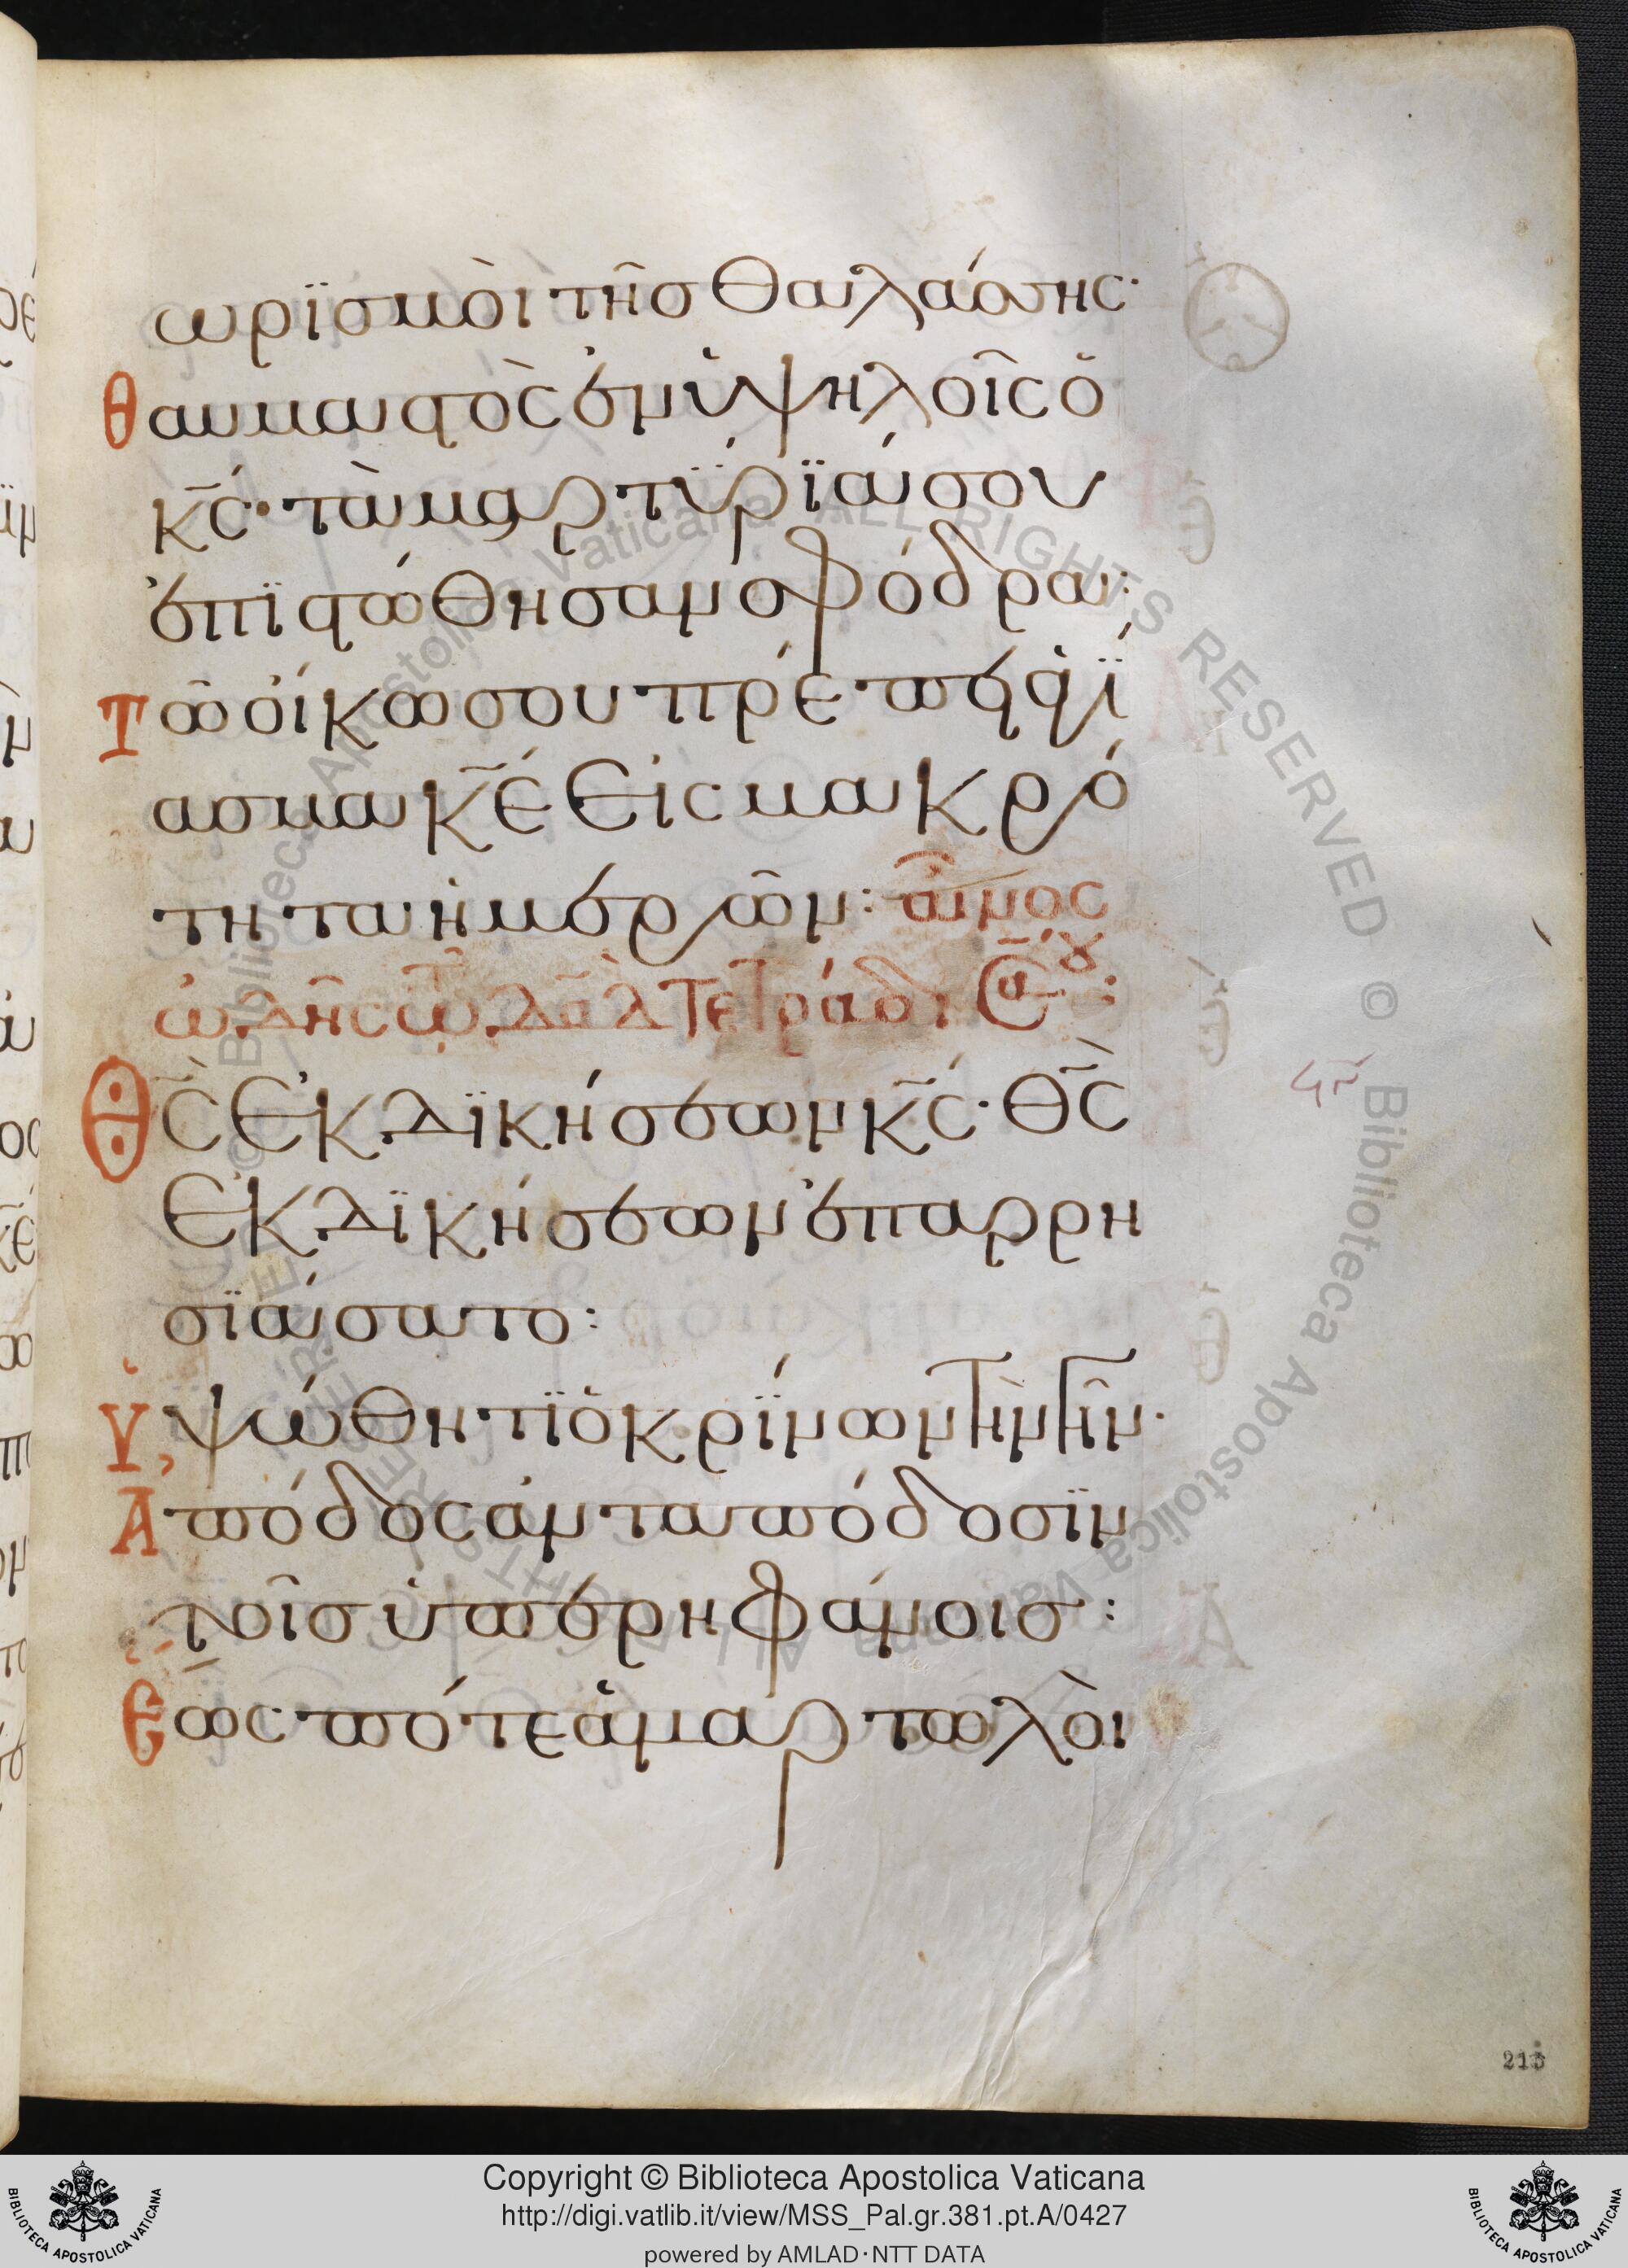 ωρϊσμοὶ τῆσ θαλάσσης·
θαυμαστὸς ἐν ὑψηλοῖς ὁ
κ̅ς́· τὰ μαρτύρϊά σου
ἐπϊστώθησαν σφόδρα:
τῶ οἴκω σου πρέπει ἁγΐ
ασμα κ̅έ εἰς μακρό
τητα ἡμερῶν: αἶνος
ὠδῆς τῶ δα̅δ τετράδι σα̅ου:
Θ̅ς̀ ἐκδϊκήσεων κ̅ς́· θ̅ς̀
ἐκδϊκήσεων ἐπαρρη
σϊάσατο:
ὑψώθητϊ ὁ κρΐνων τὴν γῆν·
ἀπόδος ἀνταπόδοσϊν
τοῖσ ὑπερηφάνοισ:
ἕως πότε ἁμαρτωλοὶ
213
Copyright © Biblioteca Apostolica Vaticana
http://digi.vatlib.it/view/MSS_Pal.gr.381.pt.A/0427
powered by AMLAD·NTT DATA
BIBLIOTECA APOSTOLICA VATICANA
BIBLIOTECA APOSTOLICA VATICANA
© Biblioteca Apostolica Vaticana ALL RIGHTS RESERVED
© Biblioteca Apostolica Vaticana ALL RIGHTS RESERVED